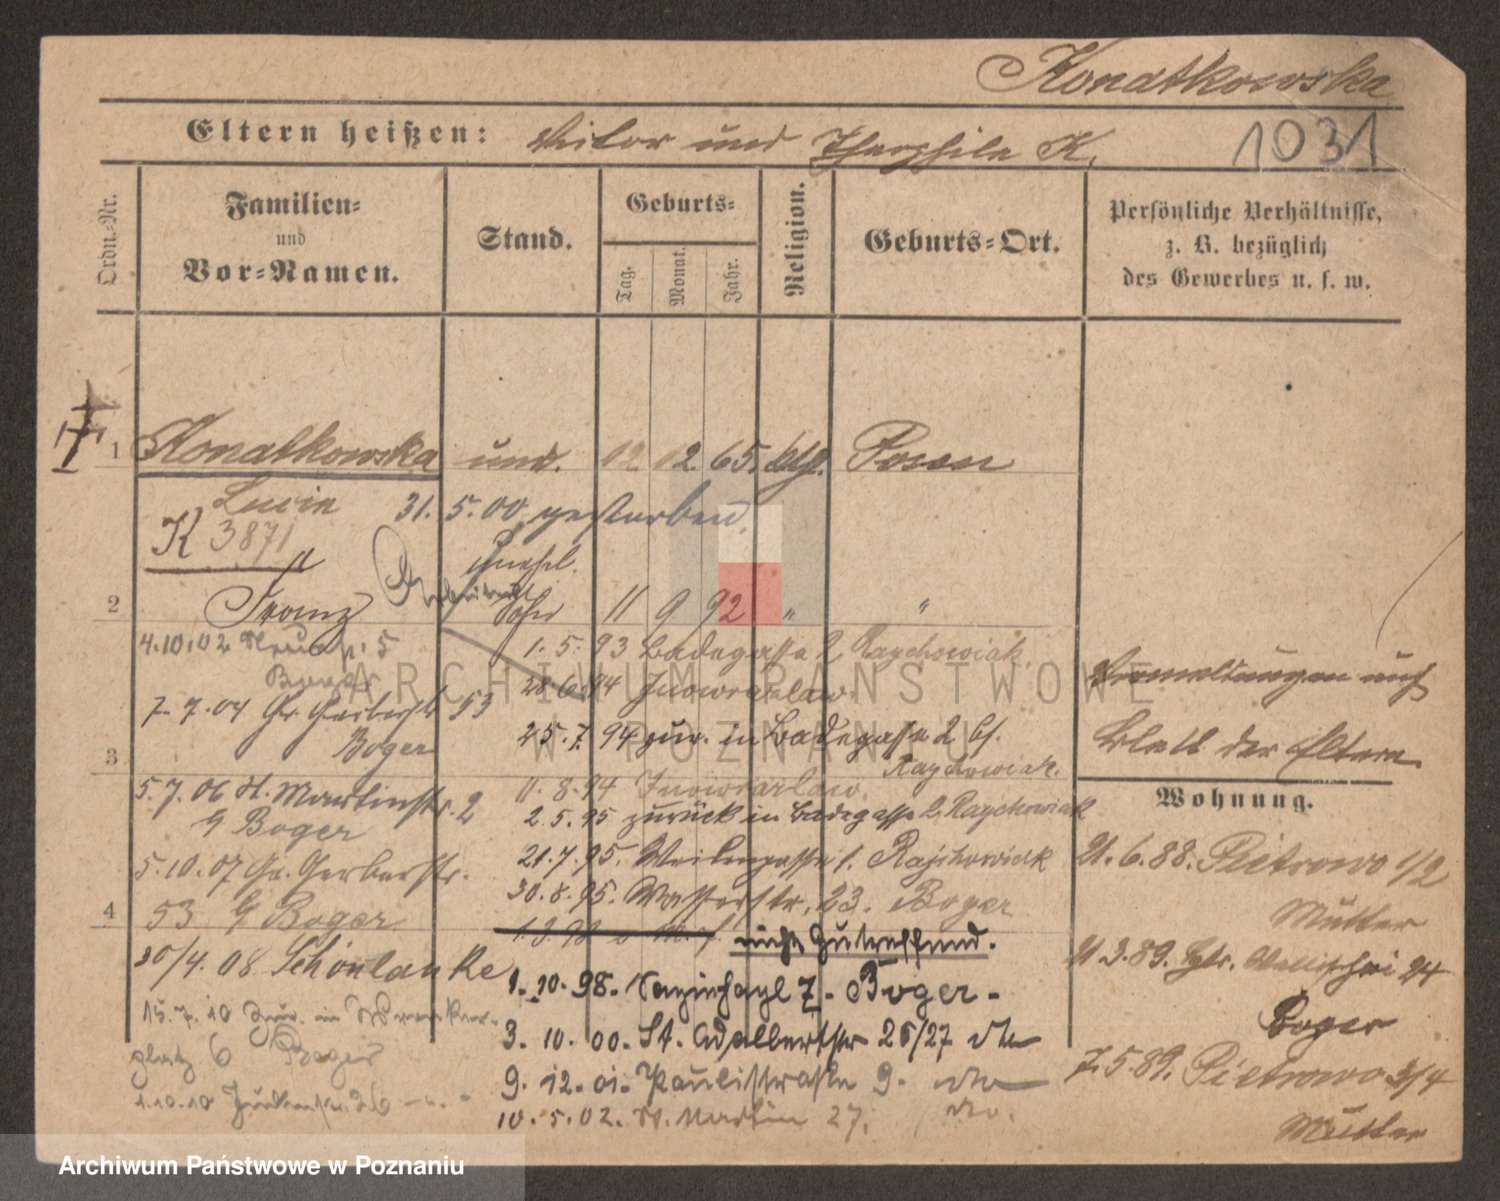 Konatkowska
1031
Eltern heißen: und Theophila K.
Ordn.-Nr.
Familien-
und
Vor-Namen.
Stand.
Geburts-
Tag.
Monat.
Jahr.
Religion.
Geburts-Ort.
Persönliche Verhältnisse,
z. B. bezüglich
des Gewerbes u. s. w.
1 Konatkowska unv. 12. 12. 65. Posen
Lucie 31. 5. 00 gestorben.
K 3871
unehl.
2 Franz Sohn 11 9 92 " "
4.10.02 5
Boger
7.7.04 Gr. Gerberstr 53
Boger
3
5.7.06 St. Martinstr. 2
b Boger
5.10.07 Gr. Gerberstr.
4 53 b Boger
20/4. 08 Schönlanke
15.7.10 zur. in
platz 6 Boger
1.10.10 26
1. 5. 93 Badegasse 2 Raychowiak
28.6.94 Inowrazlaw.
25.7.94 zur. in Badegasse 2 bs.
Raychowiak.
11.8.94 Inowrazlaw.
2.5.95 zurück in Badegasse 2, Raychowiak
21.7.95. 1. Rajchowiak
30.8.95. Wasserstr. 23. Boger
nicht zutreffend.
1.10.98. 7. Boger
3. 10. 00. St. Adalbertstr 26/27 dto
9. 12. 01. Paulistraße 9. dto
10. 5. 02. St. Martin 27. do.
Bemerkungen auf
Blatt der Eltern.
Wohnung.
21.6.88. Pietrowo 1/2
Mutter
24
Boger
7.5.89. Pietrowo 3/4
Mutter
ARCHIWUM PAŃSTWOWE
W POZNANIU
Archiwum Państwowe w Poznaniu